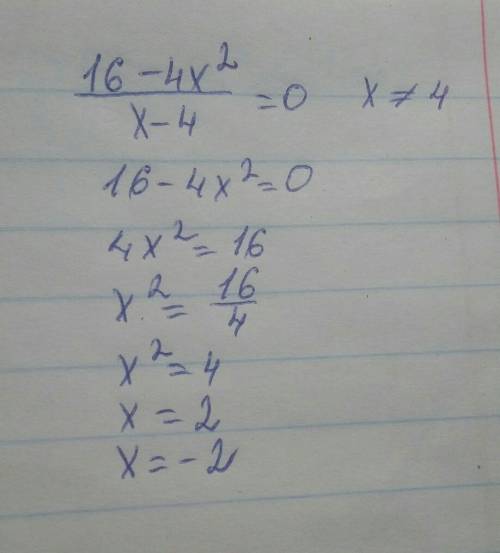 16 - 4x² / x - 4 = 0   x ≠ 4
16 - 4x² = 0
4x² = 16
x² = 16/4
x² = 4
x = 2
x = -2